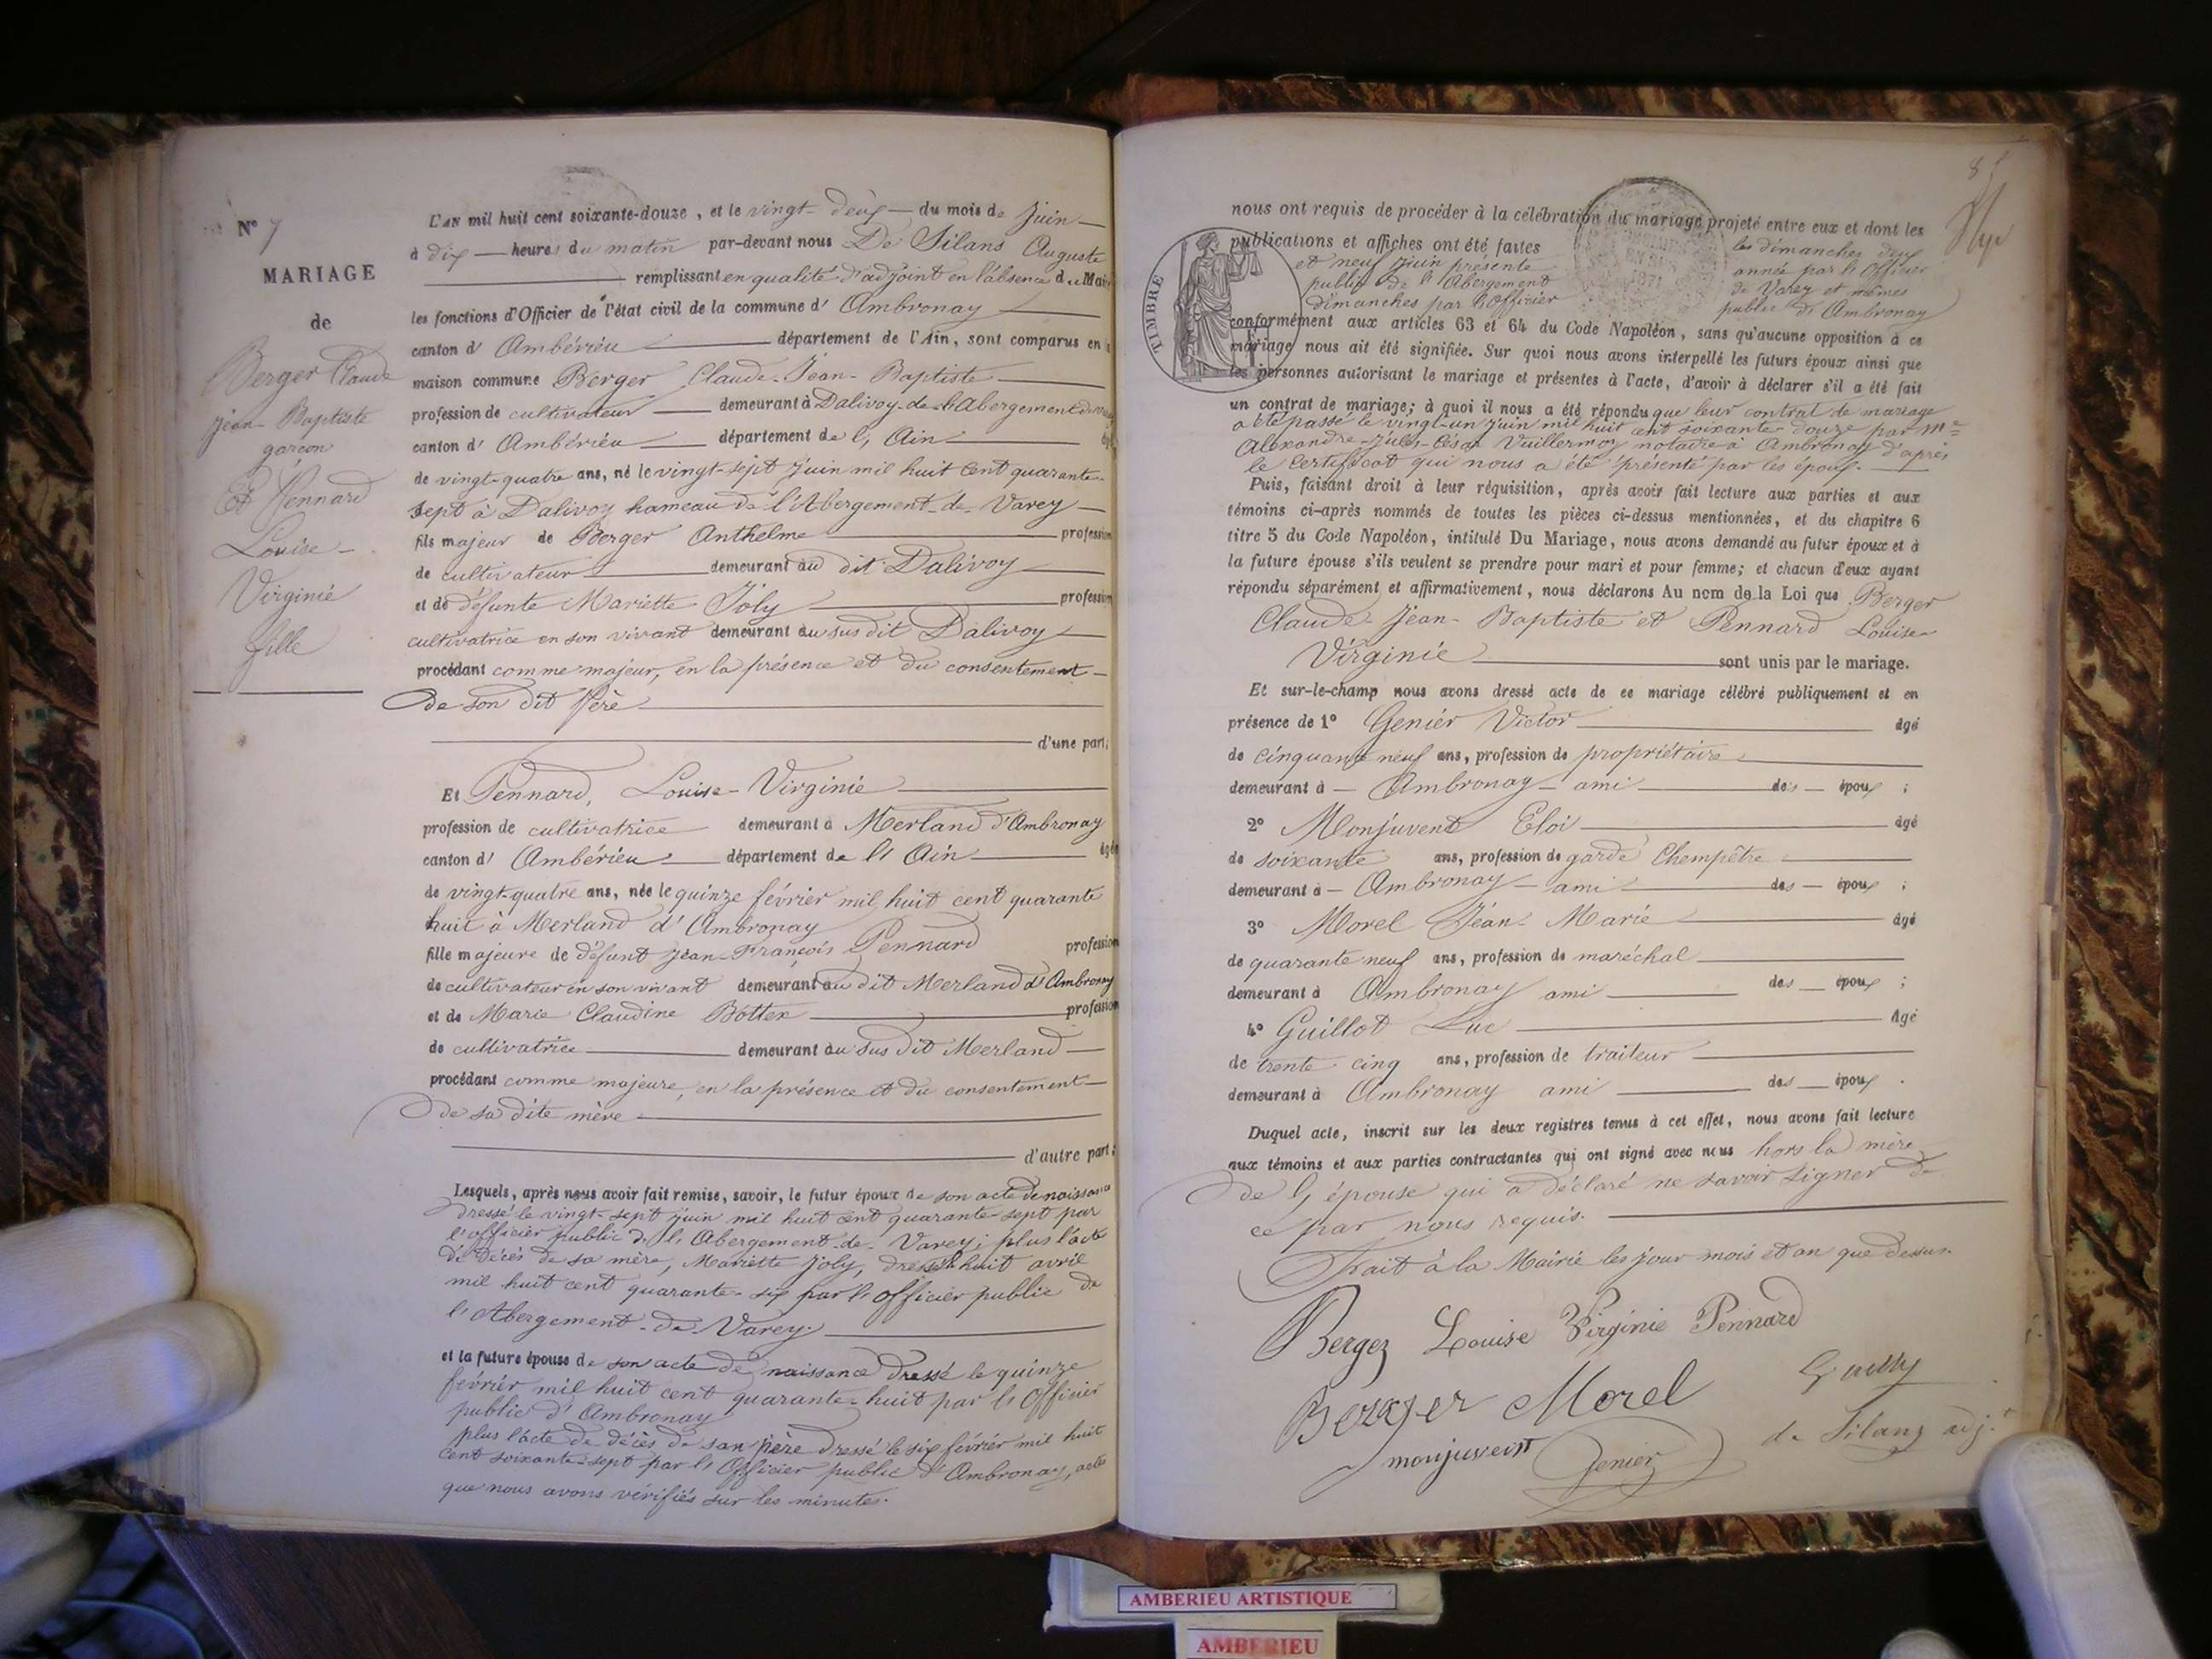 N° 7
MARIAGE
de
Berger Claude
Jean-Baptiste
garçon
Et Pennard
Louise-
Virginie
fille
L'AN mil huit cent soixante-douze, et le vingt-deux du mois de Juin
à dix heures du matin par-devant nous De Silans Auguste
remplissant en qualité d'adjoint en l'absence du Maire
les fonctions d'Officier de l'état civil de la commune d' Ambronay
canton d' Ambérieu département de l'Ain, sont comparus en
maison commune Berger Claude-Jean-Baptiste
profession de cultivateur demeurant à Dalivoy-de-l'Abergement de
canton d' Ambérieu département de l' Ain
de vingt-quatre ans, né le vingt-sept juin mil huit cent quarante-
sept à Dalivoy hameau de l'Abergement-de-Varey
fils majeur de Berger Anthelme profession
de cultivateur demeurant au dit Dalivoy
et de défunte Mariette Joly profession
cultivatrice en son vivant demeurant au sus dit Dalivoy
procédant comme majeur, en la présence et du consentement
de son dit Père
d'une part;
Et Pennard, Louise-Virginie
profession de cultivatrice demeurant à Merland d'Ambronay
canton d' Ambérieu département de l' Ain âgée
de vingt-quatre ans, née le quinze février mil huit cent quarante
huit à Merland d'Ambronay
fille majeure de défunt Jean-François Pennard profession
de cultivateur en son vivant demeurant au dit Merland d'Ambronay
et de Marie Claudine Bottex profession
de cultivatrice demeurant au sus dit Merland
procédant comme majeure, en la présence et du consentement
de sa dite mère
d'autre part;
Lesquels, après nous avoir fait remise, savoir, le futur époux de son acte de naissance
dressé le vingt-sept juin mil huit cent quarante-sept par
l'officier public de l'Abergement-de-Varey; plus l'acte
de décès de sa mère, Mariette Joly, dressé huit avril
mil huit cent quarante-six par l'officier public de
l'Abergement-de-Varey.
et la future épouse de son acte de naissance dressé le quinze
février mil huit cent quarante-huit par l'Officier
public d'Ambronay
plus l'acte de décès de son père dressé le six février mil huit
cent soixante-sept par l'Officier public d'Ambronay, acte
que nous avons vérifiés sur les minutes.
nous ont requis de procéder à la célébration du mariage projeté entre eux et dont les
publications et affiches ont été faites les dimanches deux
et neuf juin présente année par l'Officier
public de l'Abergement de Varey et mêmes
dimanches par l'Officier public d'Ambronay
TIMBRE
1871
conformément aux articles 63 et 64 du Code Napoléon, sans qu'aucune opposition à ce
mariage nous ait été signifiée. Sur quoi nous avons interpellé les futurs époux ainsi que
les personnes autorisant le mariage et présentes à l'acte, d'avoir à déclarer s'il a été fait
un contrat de mariage; à quoi il nous a été répondu que leur contrat de mariage
a été passé le vingt-un juin mil huit cent soixante-douze par Me
Alexandre-Jules-César Vuillermoz notaire à Ambronay d'après
le certificat qui nous a été présenté par les époux.
Puis, faisant droit à leur réquisition, après avoir fait lecture aux parties et aux
témoins ci-après nommés de toutes les pièces ci-dessus mentionnées, et du chapitre 6
titre 5 du Code Napoléon, intitulé Du Mariage, nous avons demandé au futur époux et à
la future épouse s'ils veulent se prendre pour mari et pour femme; et chacun d'eux ayant
répondu séparément et affirmativement, nous déclarons Au nom de la Loi que Berger
Claude-Jean-Baptiste et Pennard Louise-
Virginie sont unis par le mariage.
Et sur-le-champ nous avons dressé acte de ce mariage célébré publiquement et en
présence de 1° Genier Victor âgé
de cinquante neuf ans, profession de propriétaire
demeurant à Ambronay ami des époux ;
2° Monjuvent Eloi âgé
de soixante ans, profession de garde Chempêtre
demeurant à Ambronay ami des époux ;
3° Morel Jean-Marie âgé
de quarante neuf ans, profession de maréchal
demeurant à Ambronay ami des époux ;
4° Guillot Luc âgé
de trente cinq ans, profession de traiteur
demeurant à Ambronay ami des époux .
Duquel acte, inscrit sur les deux registres tenus à cet effet, nous avons fait lecture
aux témoins et aux parties contractantes qui ont signé avec nous hors la mère
de l'épouse qui a déclaré ne savoir signer de
ce par nous requis.
Fait à la Mairie les jour mois et an que dessus.
Berger Louise Virginie Pennard
Berger Morel
monjuvent Genier de Silans adj.t
AMBERIEU ARTISTIQUE
AMBERIEU